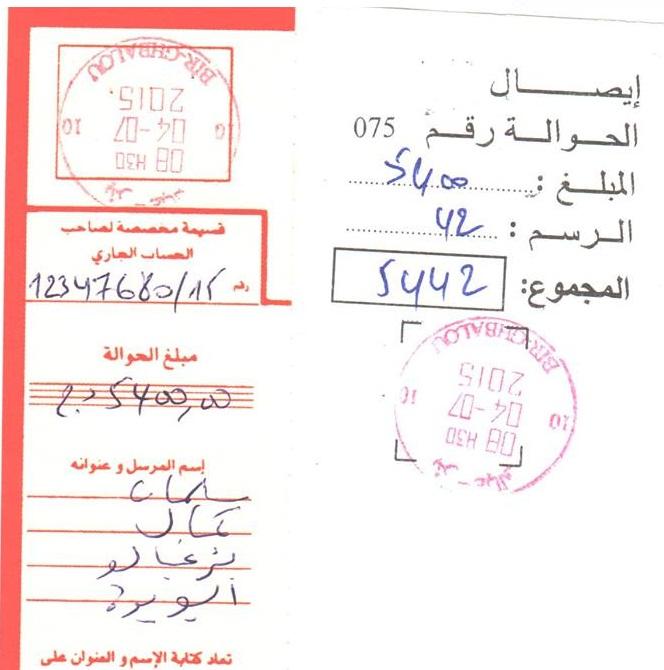 BIR-GHBALOU
2015
04-07
08 H30
10 10
قسيمة مخصصة لصاحب
الحساب الجاري
رقم 12347680/15
مبلغ الحوالة
5400,00 د.ج
إسم المرسل و عنوانه
سلمان
كمال
بئر غبالو
البويرة
تعاد كتابة الإسم و العنوان على
إيصال
الحوالة رقم 075
المبلغ : 5400
الرسم : 42
المجموع: 5442
BIR-GHBALOU
2015
04-07
08 H30
10 10